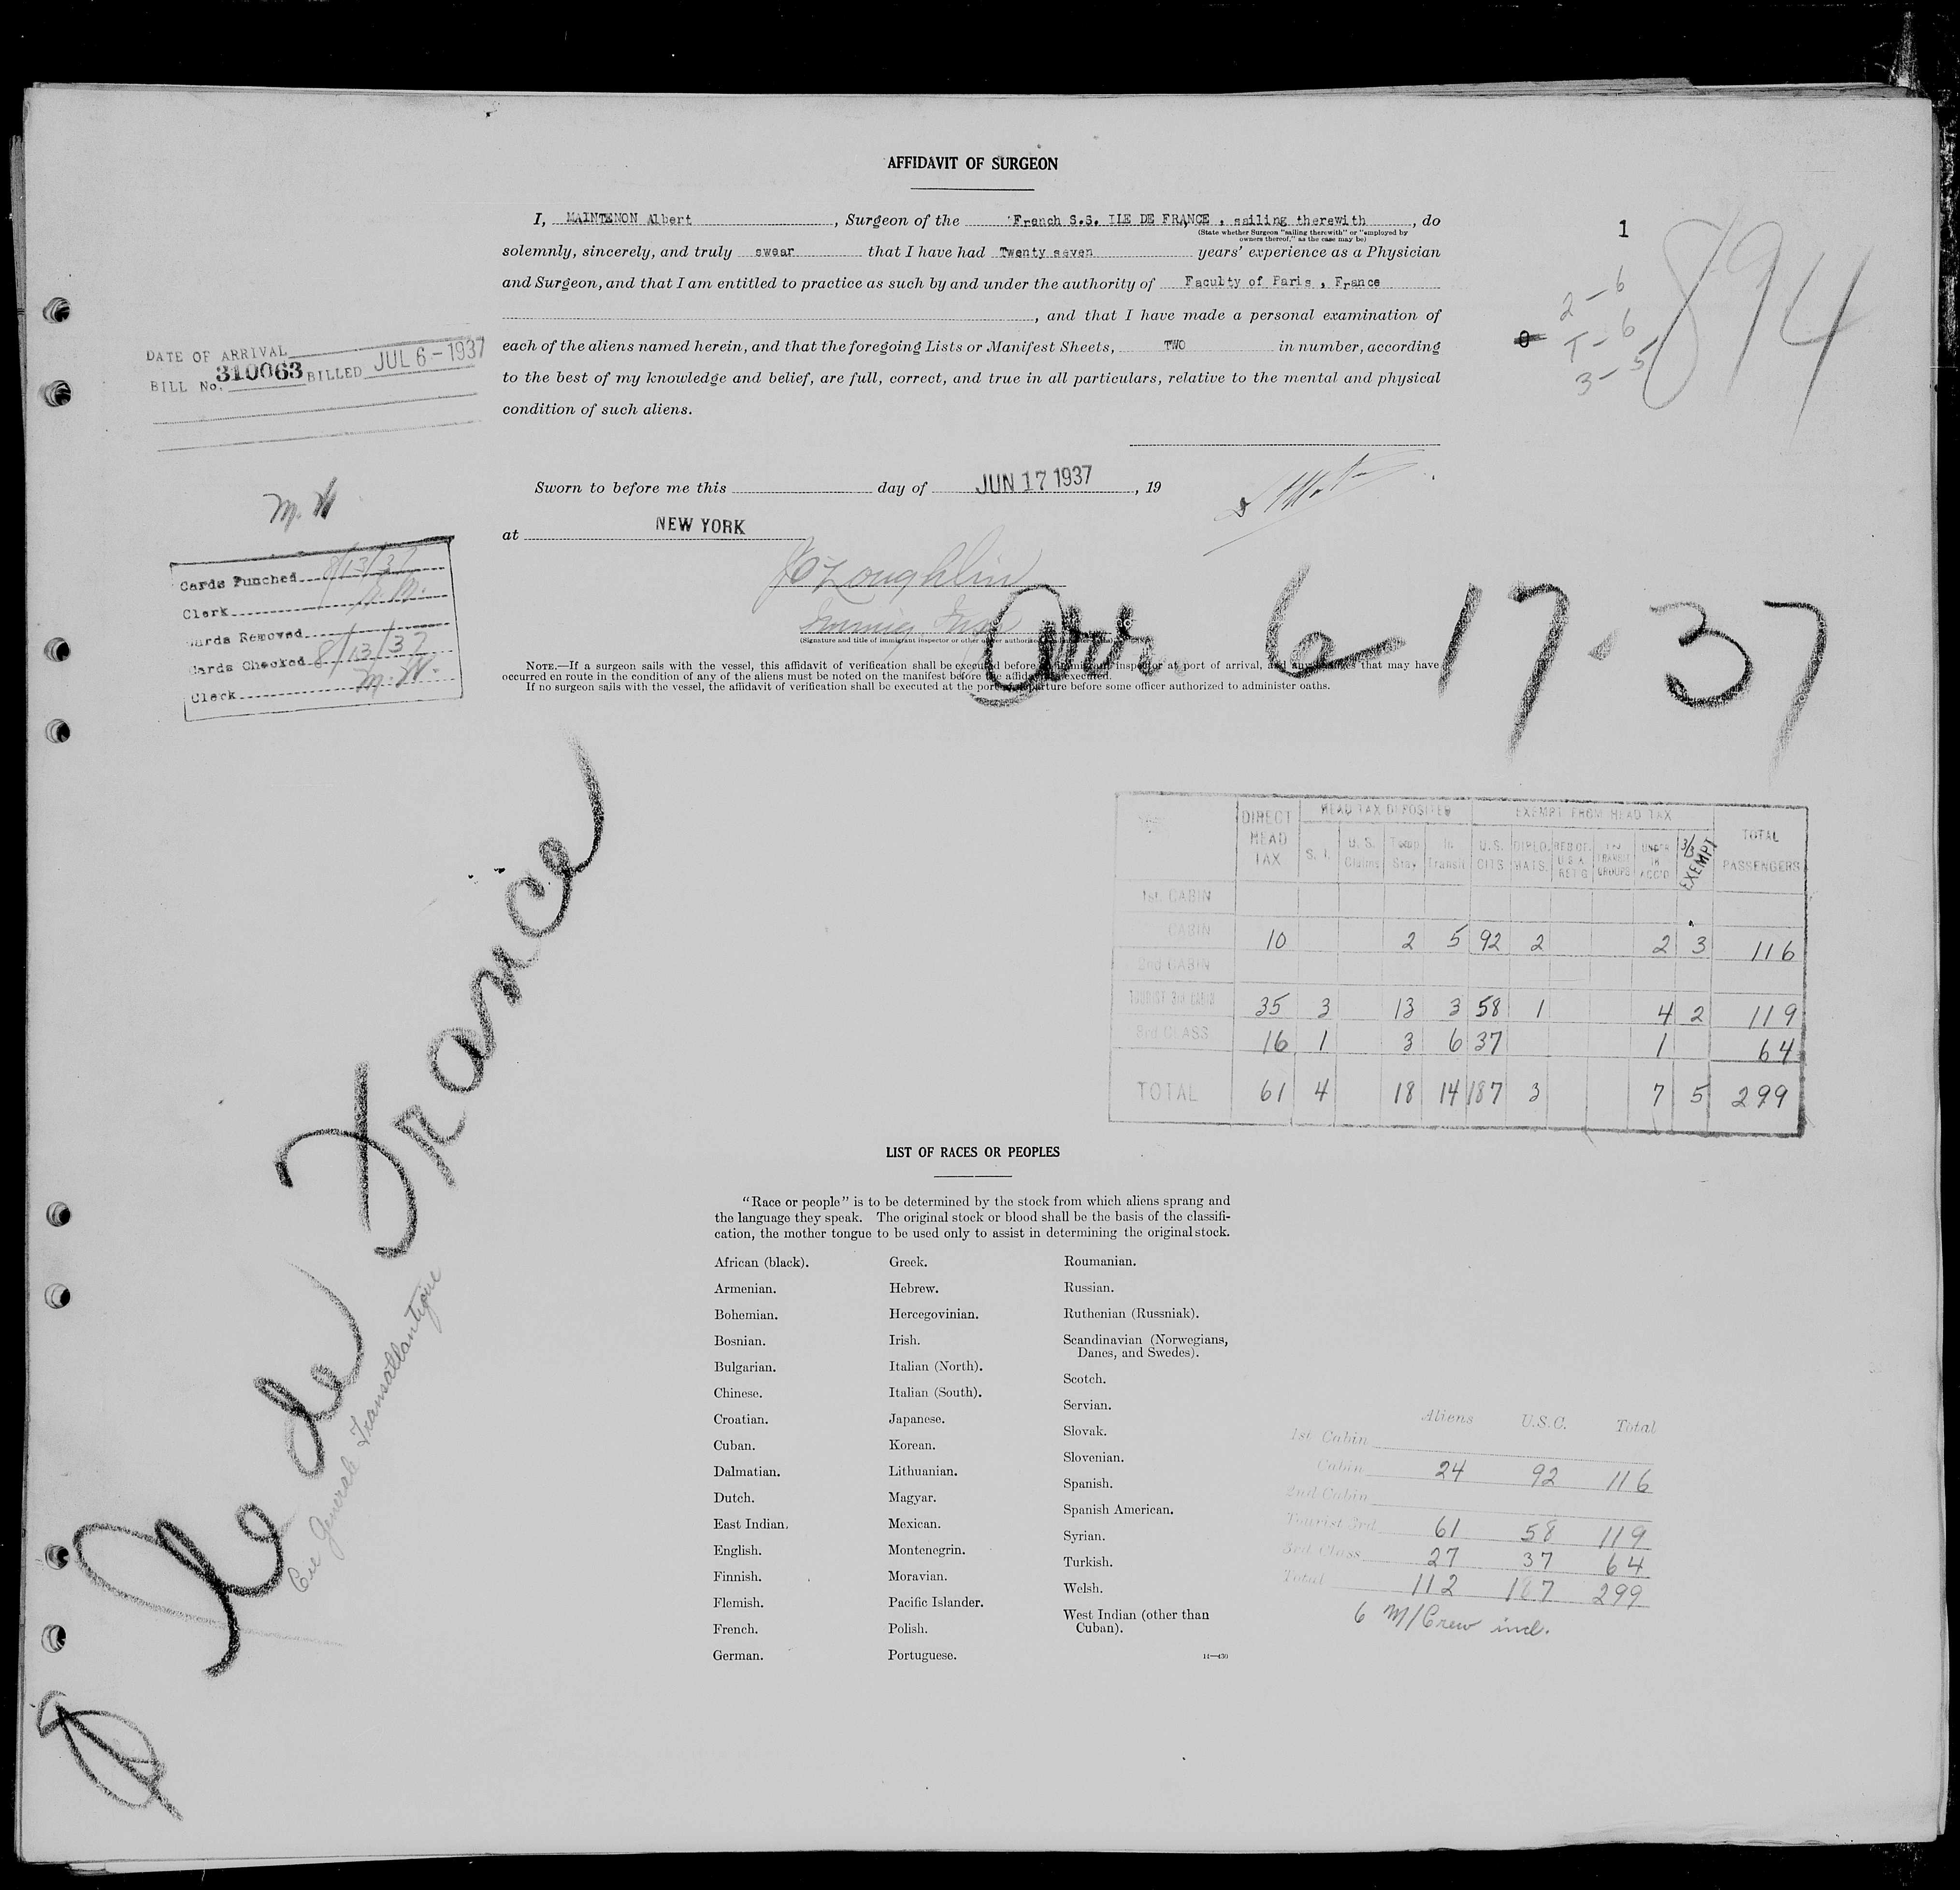 AFFIDAVIT OF SURGEON
I, MAINTENON Albert, Surgeon of the French S.S. ILE DE FRANCE, sailing therewith, do
(State whether Surgeon "sailing therewith" or "employed by
owners thereof," as the case may be)
solemnly, sincerely, and truly swear that I have had Twenty seven years' experience as a Physician
and Surgeon, and that I am entitled to practice as such by and under the authority of Faculty of Paris, France
, and that I have made a personal examination of
each of the aliens named herein, and that the foregoing Lists or Manifest Sheets, TWO in number, according
to the best of my knowledge and belief, are full, correct, and true in all particulars, relative to the mental and physical
condition of such aliens.
1
894
2-6
T-6
3-5
0
DATE OF ARRIVAL
BILL No. 310063 BILLED JUL 6-1937
Sworn to before me this day of JUN 17 1937, 19
at NEW YORK
J O'Loughlin
(Signature and title of immigrant inspector or other
Arr 6-17-37
M. W
Cards Punched 8/13/37
Clerk
Cards Removed
Cards Checked 8/13/37
Clerk M. W.
NOTE.—If a surgeon sails with the vessel, this affidavit of verification shall be executed before inspector at port of arrival, and any that may have
occurred en route in the condition of any of the aliens must be noted on the manifest before executed.
If no surgeon sails with the vessel, the affidavit of verification shall be executed at the port of departure before some officer authorized to administer oaths.
Ile de France
Cie Generale Transatlantique
DIRECT HEAD TAX HEAD TAX DEPOSITED EXEMPT FROM HEAD TAX TOTAL PASSENGERS
S. I. U.S. Claims Temp Stay In Transit U.S. CITS DIPLO. MATS. RES OF U.S.A. RET'G TRANSIT GROUPS UNDER 16 ACC'D 3/3 EXEMPT
1st. CABIN
CABIN 10 2 5 92 2 2 3 116
2nd CABIN
TOURIST 3rd CABIN 35 3 13 3 58 1 4 2 119
3rd CLASS 16 1 3 6 37 1 64
TOTAL 61 4 18 14 187 3 7 5 299
LIST OF RACES OR PEOPLES
"Race or people" is to be determined by the stock from which aliens sprang and
the language they speak. The original stock or blood shall be the basis of the classifi-
cation, the mother tongue to be used only to assist in determining the original stock.
African (black).
Armenian.
Bohemian.
Bosnian.
Bulgarian.
Chinese.
Croatian.
Cuban.
Dalmatian.
Dutch.
East Indian.
English.
Finnish.
Flemish.
French.
German.
Greek.
Hebrew.
Hercegovinian.
Irish.
Italian (North).
Italian (South).
Japanese.
Korean.
Lithuanian.
Magyar.
Mexican.
Montenegrin.
Moravian.
Pacific Islander.
Polish.
Portuguese.
Roumanian.
Russian.
Ruthenian (Russniak).
Scandinavian (Norwegians,
Danes, and Swedes).
Scotch.
Servian.
Slovak.
Slovenian.
Spanish.
Spanish American.
Syrian.
Turkish.
Welsh.
West Indian (other than
Cuban).
Aliens U.S.C. Total
1st Cabin
Cabin 24 92 116
2nd Cabin
Tourist 3rd 61 58 119
3rd Class 27 37 64
Total 112 187 299
6 M/Crew incl.